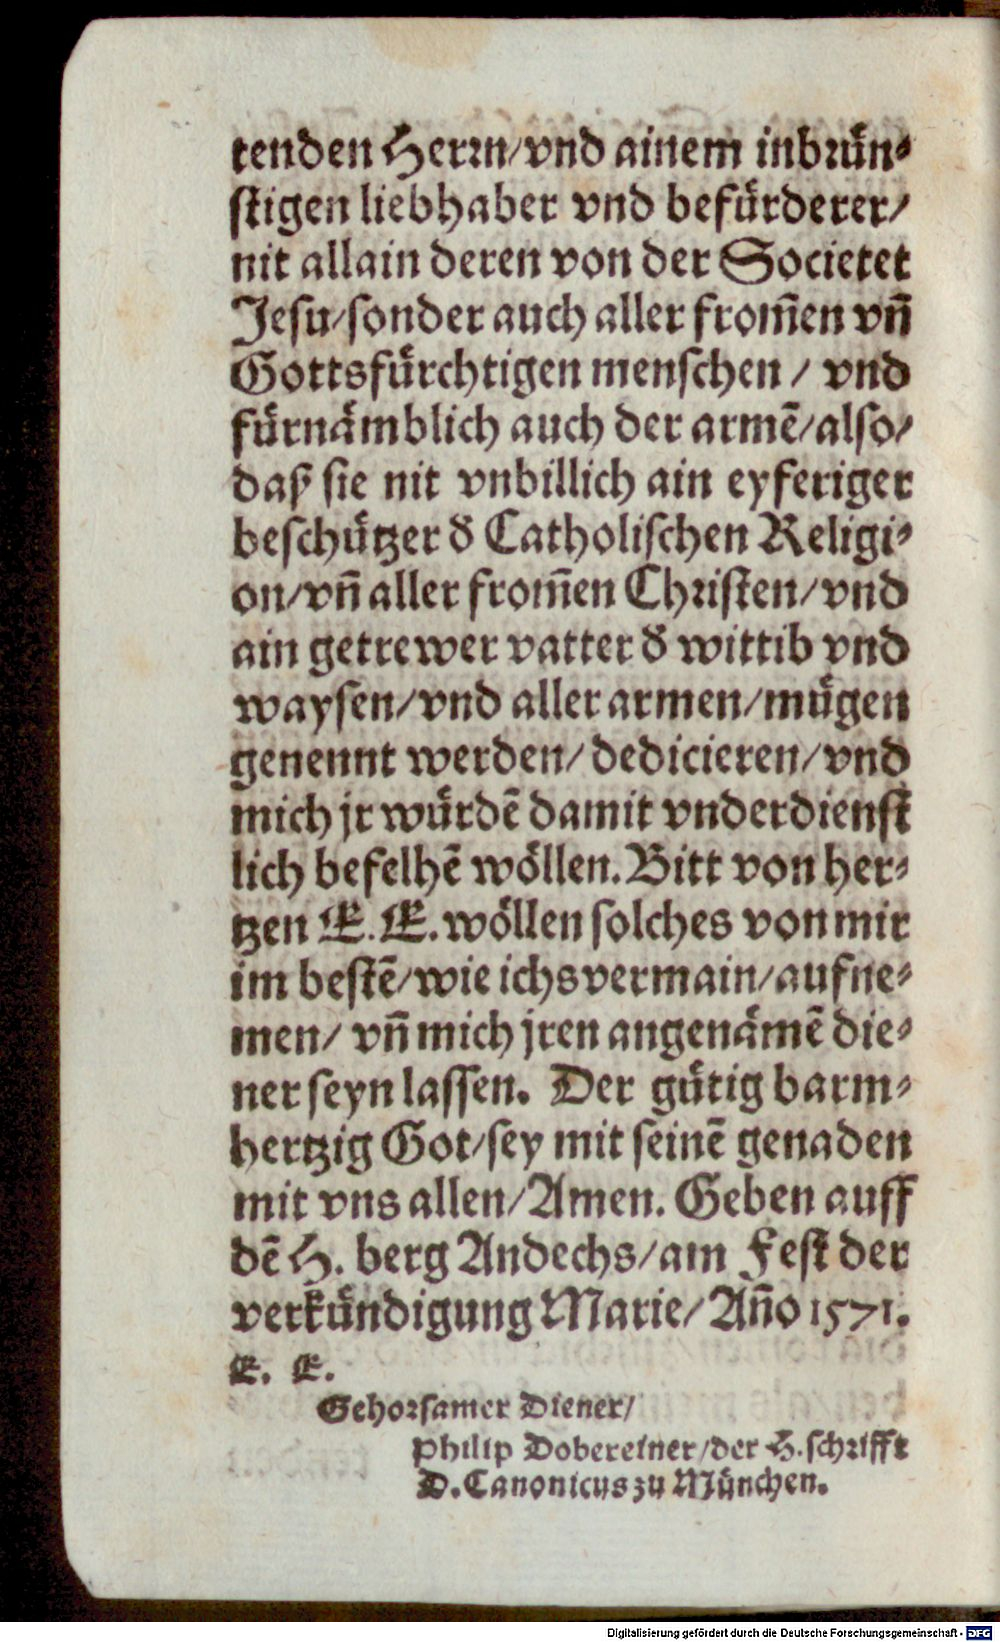 tenden Herrn/vnd ainem inbrün⸗
stigen liebhaber vnd befürderer/
nit allain deren von der Societet
Jesu/sonder auch aller from̄en vn̄
Gottsfürchtigen menschen / vnd
fürnämblich auch der armē/also/
daß sie nit vnbillich ain eyferiger
beschützer đ Catholischen Religi⸗
on/vn̄ aller from̄en Christen/vnd
ain getrewer vatter đ wittib vnd
waysen/vnd aller armen/mügen
genennt werden/dedicieren/vnd
mich jr würdē damit vnderdienst
lich befelhē wöllen. Bitt von her⸗
tzen E. E. wöllen solches von mir
im bestē/wie ichs vermain/aufne⸗
men/ vn̄ mich jren angenämē die⸗
ner seyn lassen. Der gütig barm⸗
hertzig Got/sey mit seinē genaden
mit vns allen/Amen. Geben auff
dē H. berg Andechs/am Fest der
verkündigung Marie/ An̄o 1571.
E. E.
Gehorsamer Diener/
Philip Dobereiner/der H. schrifft
D. Canonicus zu München.
Digitalisierung gefördert durch die Deutsche Forschungsgemeinschaft - DFG